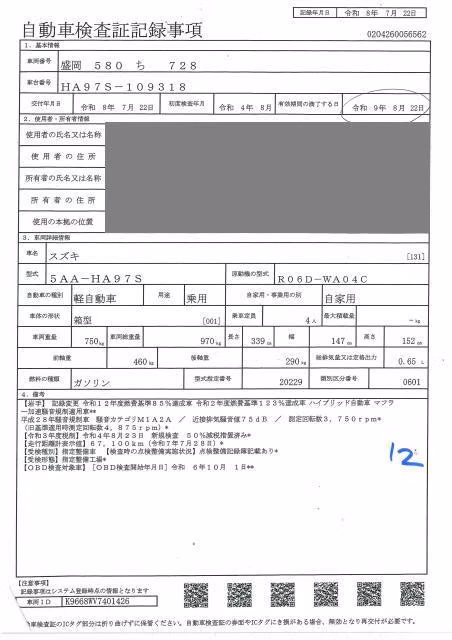 記録年月日 令和 8年 7月 22日
自動車検査証記録事項
0204260056562
1. 基本情報
車両番号 盛岡 580 ち 728
車台番号 HA97S-109318
交付年月日 令和 8年 7月 22日 初度検査年月 令和 4年 8月 有効期間の満了する日 令和 9年 8月 22日
2. 使用者・所有者情報
使用者の氏名又は名称
使用者の住所
所有者の氏名又は名称
所有者の住所
使用の本拠の位置
3. 車両詳細情報
車名 スズキ [131]
型式 5AA-HA97S 原動機の型式 R06D-WA04C
自動車の種別 軽自動車 用途 乗用 自家用・事業用の別 自家用
車体の形状 箱型 [001] 乗車定員 4人 最大積載量 -kg
車両重量 750kg 車両総重量 970kg 長さ 339cm 幅 147cm 高さ 152cm
前軸重 460kg 後軸重 290kg 総排気量又は定格出力 0.65 L
燃料の種類 ガソリン 型式指定番号 20229 類別区分番号 0601
4. 備考
【岩手】 記録変更 令和12年度燃費基準85%達成車 令和2年度燃費基準123%達成車 ハイブリッド自動車 マフラ
ー加速騒音規制適用車**
平成28年騒音規制車 騒音カテゴリM1A2A / 近接排気騒音値75dB / 測定回転数3,750rpm*
(旧基準適用時測定回転数4,875rpm)*
【令和3年度税制】令和4年8月23日 新規検査 50%減税措置済み*
【走行距離計表示値】67,100km(令和7年7月28日)
【受検種別】指定整備車 【検査時の点検整備実施状況】点検整備記録簿記載あり*
【受検形態】指定整備工場*
【OBD検査対象車】[OBD検査開始年月日] 令和 6年10月 1日**
12
【注意事項】
記録事項はシステム登録時点の情報となります
車両ID K9668WV7401426
自動車検査証のICタグ部分は折り曲げずに保管ください。自動車検査証の券面やICタグにき損がある場合、無効となり再交付が必要です。